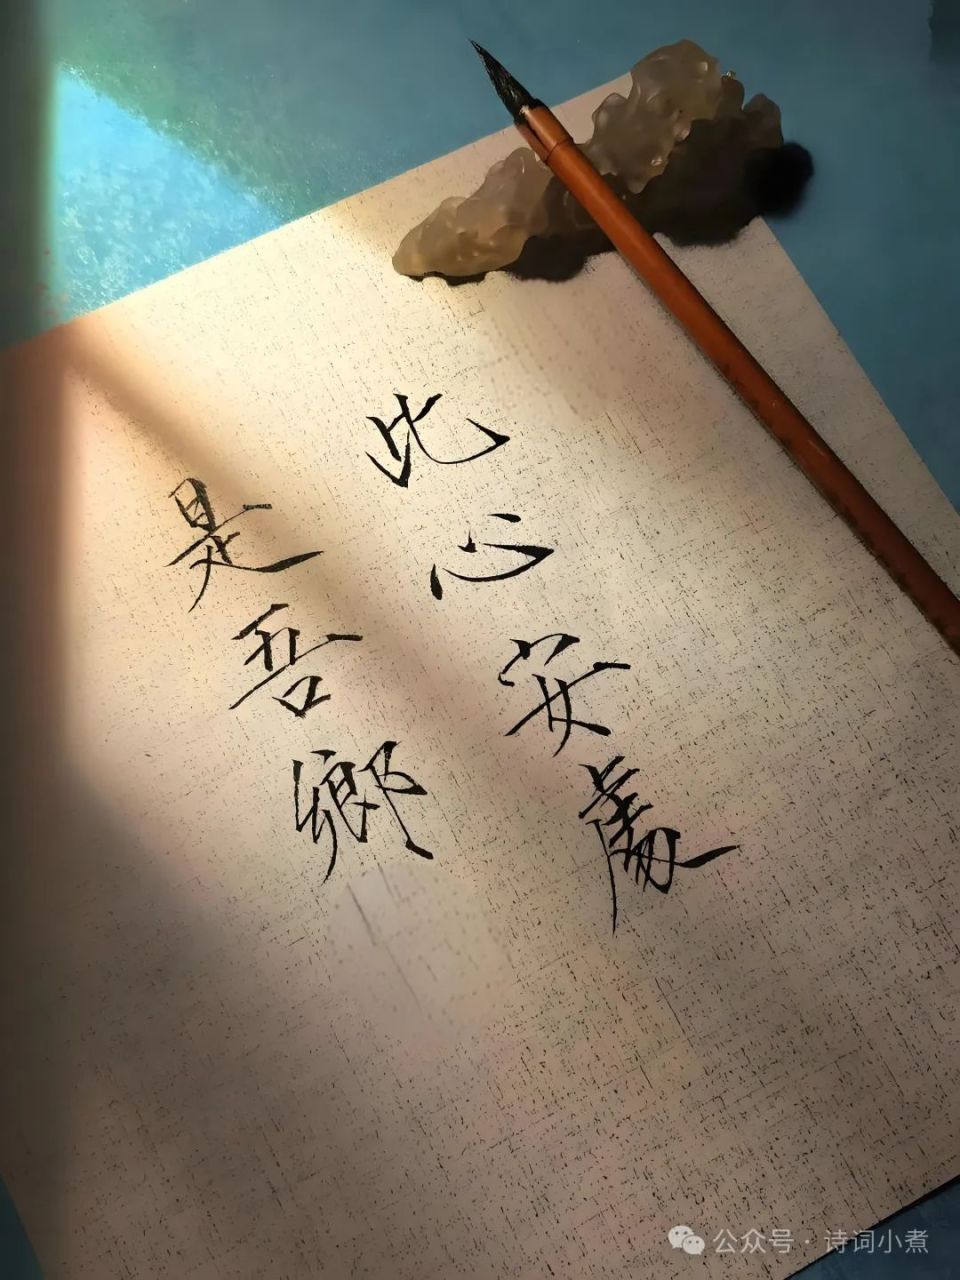 此心安處
是吾鄉
公众号·诗词小煮